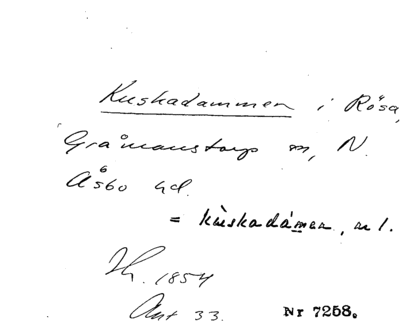 Kuskadammen i Rösa,
Gråmanstorps sn, N.
Åsbo hd.
= kùskadámen, n 1.
Th. 1854
Ant 33. Nr 7258.